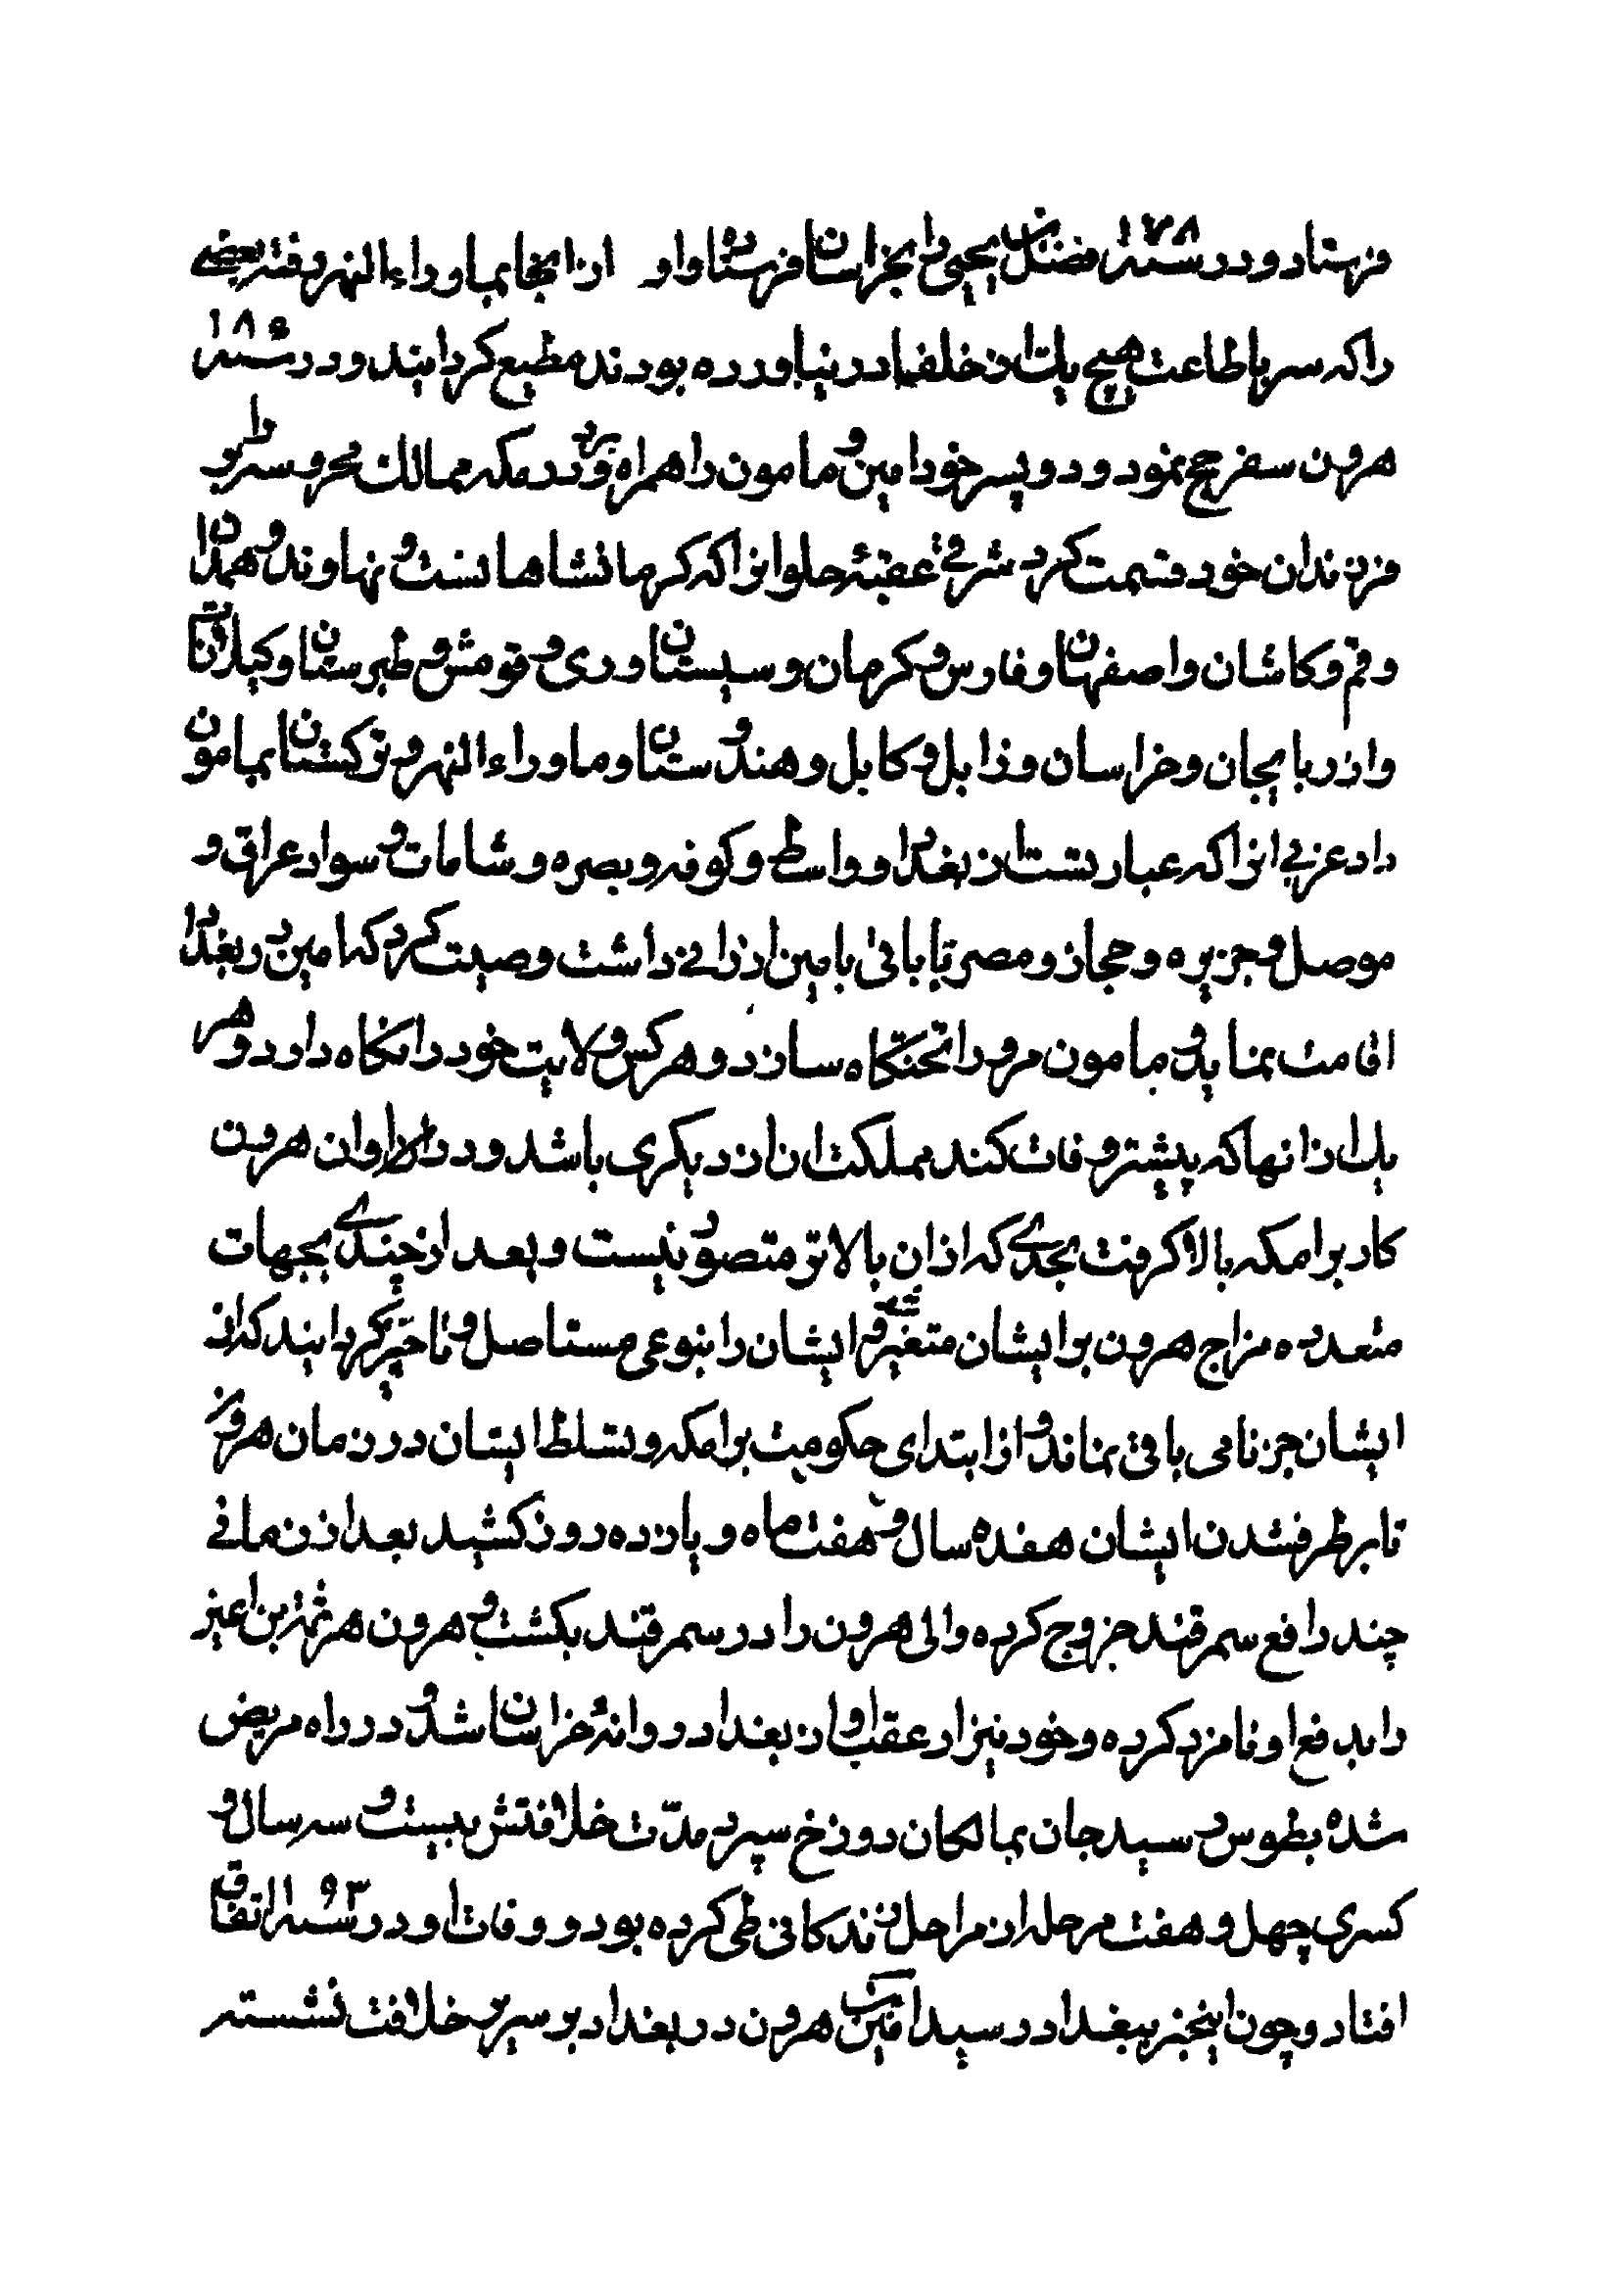 فرستاد و در سنه ۱۷۸ فضل بن یحیی را بخراسان فرستاد و او از انجا بماوراءالنهر رفته بعضی
را که سر باطاعت هیچ یک از خلفا در نیاورده بودند مطیع کردانیند و در سنه ۱۸۶
هرون سفر حج نمود و دو پسر خود امین و مامون را همراه برد و در مکه ممالک محروسه را بر
فرزندان خود قسمت کرد شرقی عقبهٔ حلوانرا که کرمانشاهانست و نهاوند و همدان
و قم و کاشان و اصفهان و فارس و کرمان و سیستان و ری و قومش و طبرستان و کیلانات
و اذربایجان و خراسان و زابل و کابل و هندوستان و ماوراءالنهر و ترکستان بمامون
داد غربی انرا که عبارتست از بغداد و واسط و کوفه و بصره و شامات و سواد عراق و
موصل و جزیره و حجاز و مصر تا باباتی بامین ارزانی داشت وصیت کرد که امین در بغداد
اقامت نماید و مامون مرو را تختکاه سازد و هر کس ولایت خود را نکاه دارد و هر
یک از انها که پیشتر وفات کند مملکت ان از دیکری باشد و در ان اوان هرون
کار برامکه بالا کرفت بحدی که از ان بالاتر متصور نیست و بعد از چندی بجهات
متعدده مزاج هرون بر ایشان متغیر شده و ایشان را بنوعی مستاصل و ناچیز کردانیند که از
ایشان جز نامی باقی نماند و از ابتدای حکومت برامکه و تسلط ایشان در زمان هرون
تا برطرف شدن ایشان هفده سال و هفت ماه و پانزده روز کشید بعد از زمانی
چند رافع سمرقند خروج کرده والی هرون را در سمرقند بکشت و هرون هرثمة بن اعین
را بدفع او نامزد کرده و خود نیز از عقب او از بغداد روانهٔ خراسان شد و در راه مریض
شده بطوس رسید جان بمالکان دوزخ سپرد مدّت خلافتش بیست و سه سال و
کسری چهل و هفت مرحله از مراحل زندکانی طی کرده بود و وفات او در سنه ۱۹۳ اتفاق
افتاد و چون اینخبر ببغداد رسید امین بن هرون در بغداد بر سریر خلافت نشسته